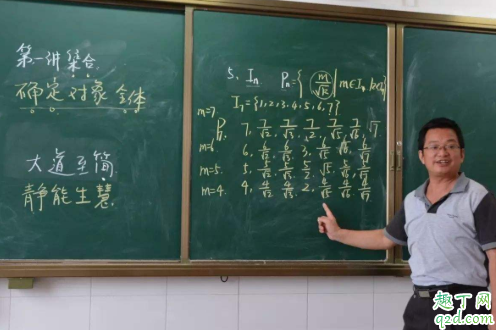 第一讲集合
确定对象全体
大道至简
静能生慧
5、In Pn={ m/√k | m∈In, k∈In}
m=7 I7={1,2,3,4,5,6,7}
P7 7, 7/√2, 7/√3, 7/2, 7/√5, 7/√6, √7
m=6 6, 6/√2, 6/√3, 3, 6/√5, 6/√6, 6/√7
m=5. 5, 5/√2, 5/√3, 5/2, √5, 5/√6, 5/√7
m=4. 4, 4/√2, 4/√3, 2, 4/√5, 4/√6, 4/√7
趣丁网
q2d.com